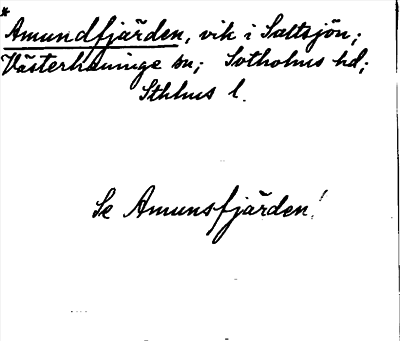 *
Amundfjärden, vik i Saltsjön;
Västerhaninge sn; Sotholms hd;
Sthlms l.
Se Amunsfjärden!